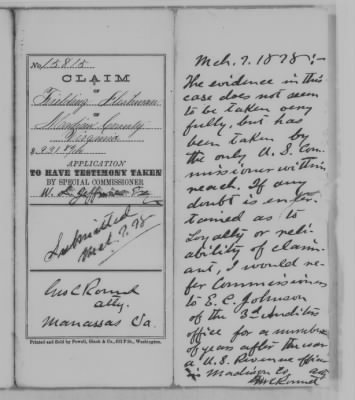 No. 15815
CLAIM
OF
Fielding
OF
Madison County
Virginia
$
APPLICATION
TO HAVE TESTIMONY TAKEN
BY SPECIAL COMMISSIONER
W. L. Jeffries Esq
Submitted
Mch. 7. 78
Geo C Round
atty.
Manassas Va.
Printed and Sold by Powell, Ginck & Co., 631 F St., Washington.
Mch. 7. 1878:-
The evidence in this
case does not seem
to be taken very
fully, but has
been taken by
the only U.S. Com-
missioner within
reach. If any
doubt is enter-
tained as to
Loyalty or reli-
ability of claim-
ant, I would re-
fer Commissioners
to E. C. Johnson
of the 3d Auditors
office for a number
of years after the war
a U.S. Revenue officer
in Madison Co,
Geo C Round
atty